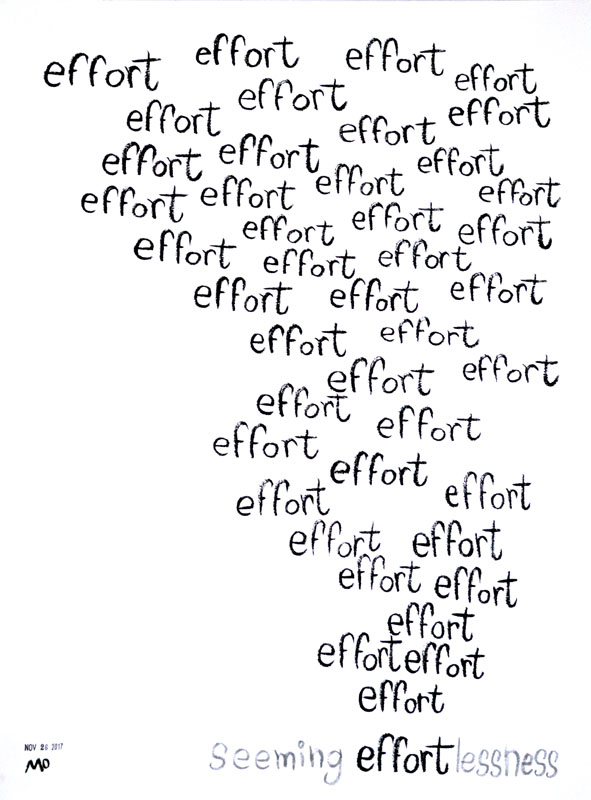 effort effort effort effort
effort effort effort effort
effort effort effort effort
effort effort effort effort
effort effort effort
effort effort
effort effort effort
effort effort
effort effort
effort effort
effort
effort
effort effort
effort effort
effort effort
effort
effort effort
effort
seeming effortlessness
NOV 26 2017
MO